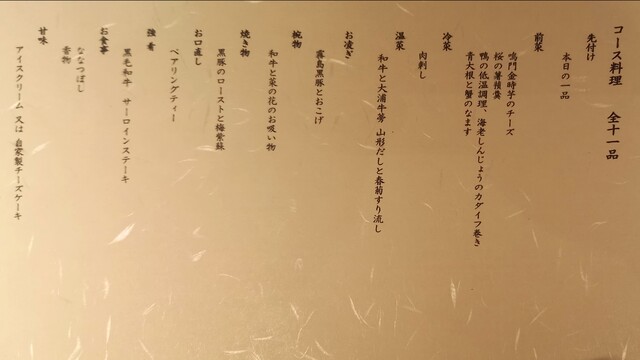 コース料理　全十一品
先付け
本日の一品
前菜
鳴門金時芋のチーズ
桜の薯蕷羹
鴨の低温調理、海老しんじょうのカダイフ巻き
青大根と蟹のなます
冷菜
肉刺し
温菜
和牛と大浦牛蒡　山形だしと春菊すり流し
お凌ぎ
霧島黒豚とおこげ
椀物
和牛と菜の花のお吸い物
焼き物
黒豚のローストと梅紫蘇
お口直し
ペアリングティー
強肴
黒毛和牛　サーロインステーキ
お食事
ななつぼし
香物
甘味
アイスクリーム　又は　自家製チーズケーキ